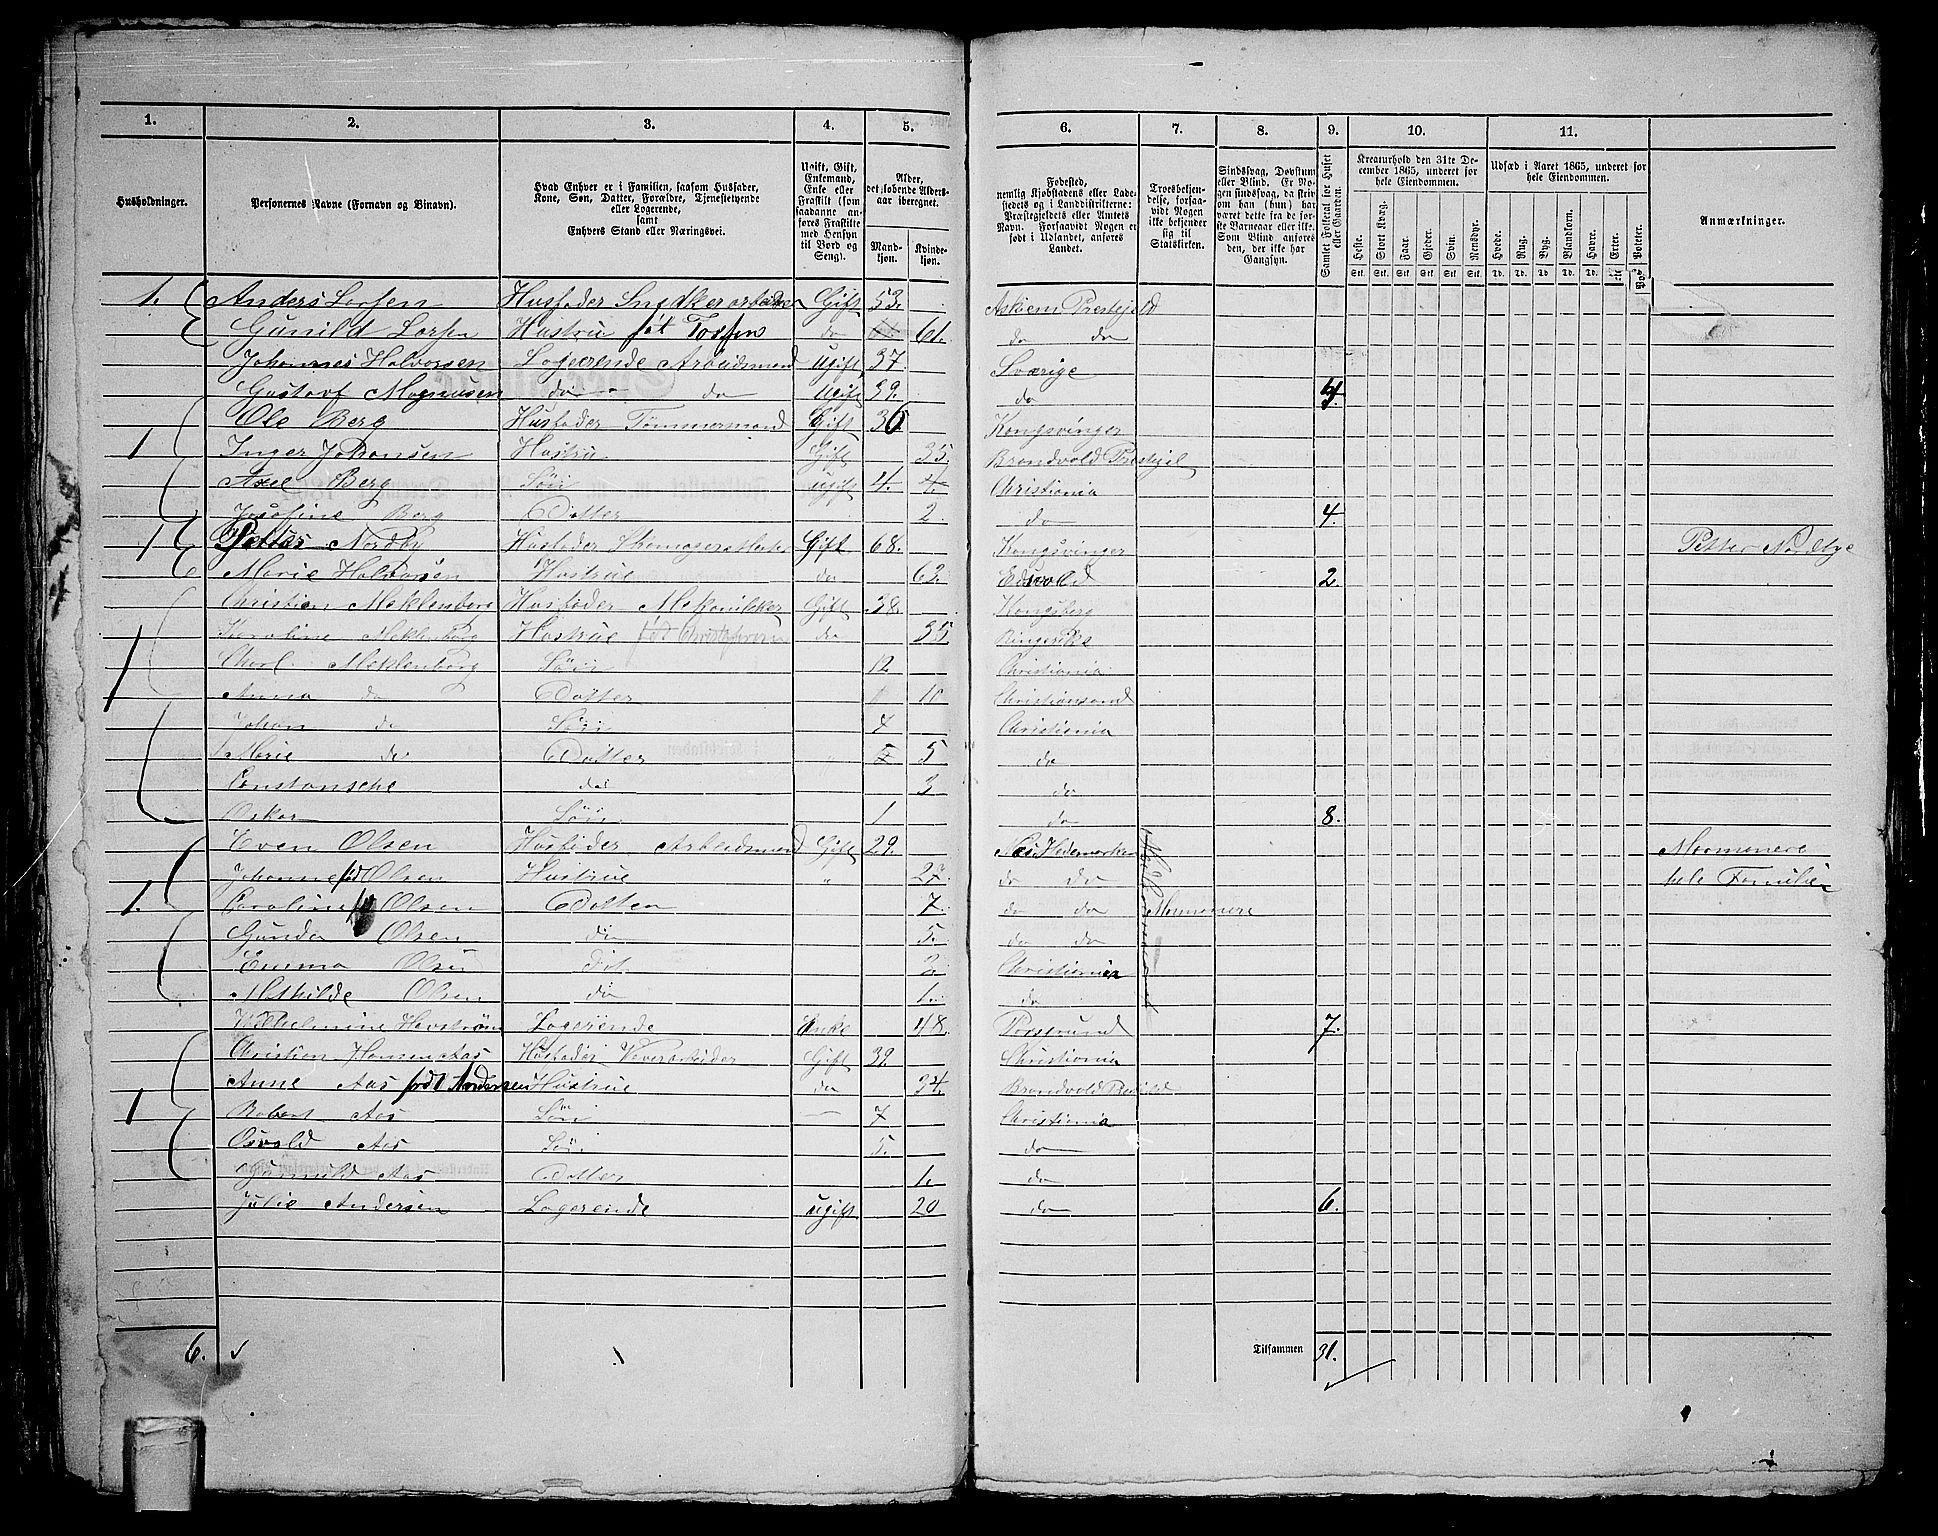 1. 2. 3. 4. 5. 6. 7. 8. 9. 10. 11.
Husholdninger. Personernes Navne (Fornavn og Binavn). Hvad Enhver er i Familien, saasom Husfader, Kone, Søn, Datter, Forældre, Tjenestetyende eller Logerende, samt Enhvers Stand eller Næringsvei. Ugift, Gift, Enkemand, Enke eller Fraskilt (som saadanne anføres Fraskilte med Hensyn til Bord og Seng). Alder, det løbende Aldersaar iberegnet. Mandkjøn. Kvindekjøn. Fødested, nemlig Kjøbstadens eller Ladestedets og i Landdistrikterne: Præstegjeldets eller Amtets Navn. Forsaavidt Nogen er født i Udlandet, anføres Landet. Troesbekjendelse, forsaavidt Nogen ikke bekjender sig til Statskirken. Sindssvag, Døvstum eller Blind. Er Nogen sindssvag, da skrives om han (hun) har været dette fra de første Barneaar eller ikke. Som Blind anføres den, der ikke har Gangsyn. Samlet Folketal for Huset eller Gaarden. Kreaturhold den 31te December 1865, underet før hele Eiendommen. Udsæd i Aaret 1865, underet før hele Eiendommen. Anmærkninger.
Heste. Stort Kvæg. Faar. Gjeder. Svin. Rensdyr. Hvede. Rug. Byg. Blandkorn. Havre. Erter. Poteter.
Stk. Stk. Stk. Stk. Stk. Stk. Td. Td. Td. Td. Td. Td.
1. Anders Larsen Husfader Snedkerarbeider Gift 53. Askiem Prestejeld
Gunild Larsen Hustru føt Tossen do 61. do do
Johannes Halvorsen Logerende Arbeidsmand ugift 37. Sværige
Gustavf Magnusen do do ugift 39. do 4.
1 Ole Berg Husfader Tømmermand Gift 36 Kongsvinger
Inger Johansen Hustru Gift 35 Brandvold Prestejel
Axel Berg Sön ugift 4. 4. Christiania
Josefine Berg Datter 2. do 4.
1 Petter Nordby Husfader Gift 68. Kongsvinger Petter Nordbye
Marie Halvorsen Hustrue do 62. Edsvold 2.
1 Christian Meklenborg Husfader Mekaniker Gift 38. Kongsberg
Karoline Meklenborg Hustrue født Christofersen do 35 Ringerike
Charl Meklenborg Sön 12 Christiania
Anna do Datter 10 Christiansand
Johan do Sön 7 Christiania
Marie do Datter 5 5 do
Constansche do 3 do
Oskar Sön 1 do 8.
1. Even Olsen Husfader Arbeidsmand Gift 29. Næs Hedemarken Mormonere
Johanne fød Olsen Hustrue " 27. do do hele Familien
Caroline Olsen Datter 7. do do Mormonere
Gunda Olsen do 5. do do
Emma Olsen dot 2. Christiania
Mathilde Olsen do 1. do
Vilhelmine Havström Logerende Enke 48. Porsgrund 7.
1 Christian Hansen Aas Husfader Vever arbeider Gift 39. Christiania
Anne Aas född Andersen Hustrue do 34. Brandvold Prestejeld
Robert Aas Sön 7 Christiania
Osvald Aas Sön 5. do
Gunnild Aas Datter 1. do
Julie Andersen Logerende ugift 20 do 6.
6. Tilsammen 31.